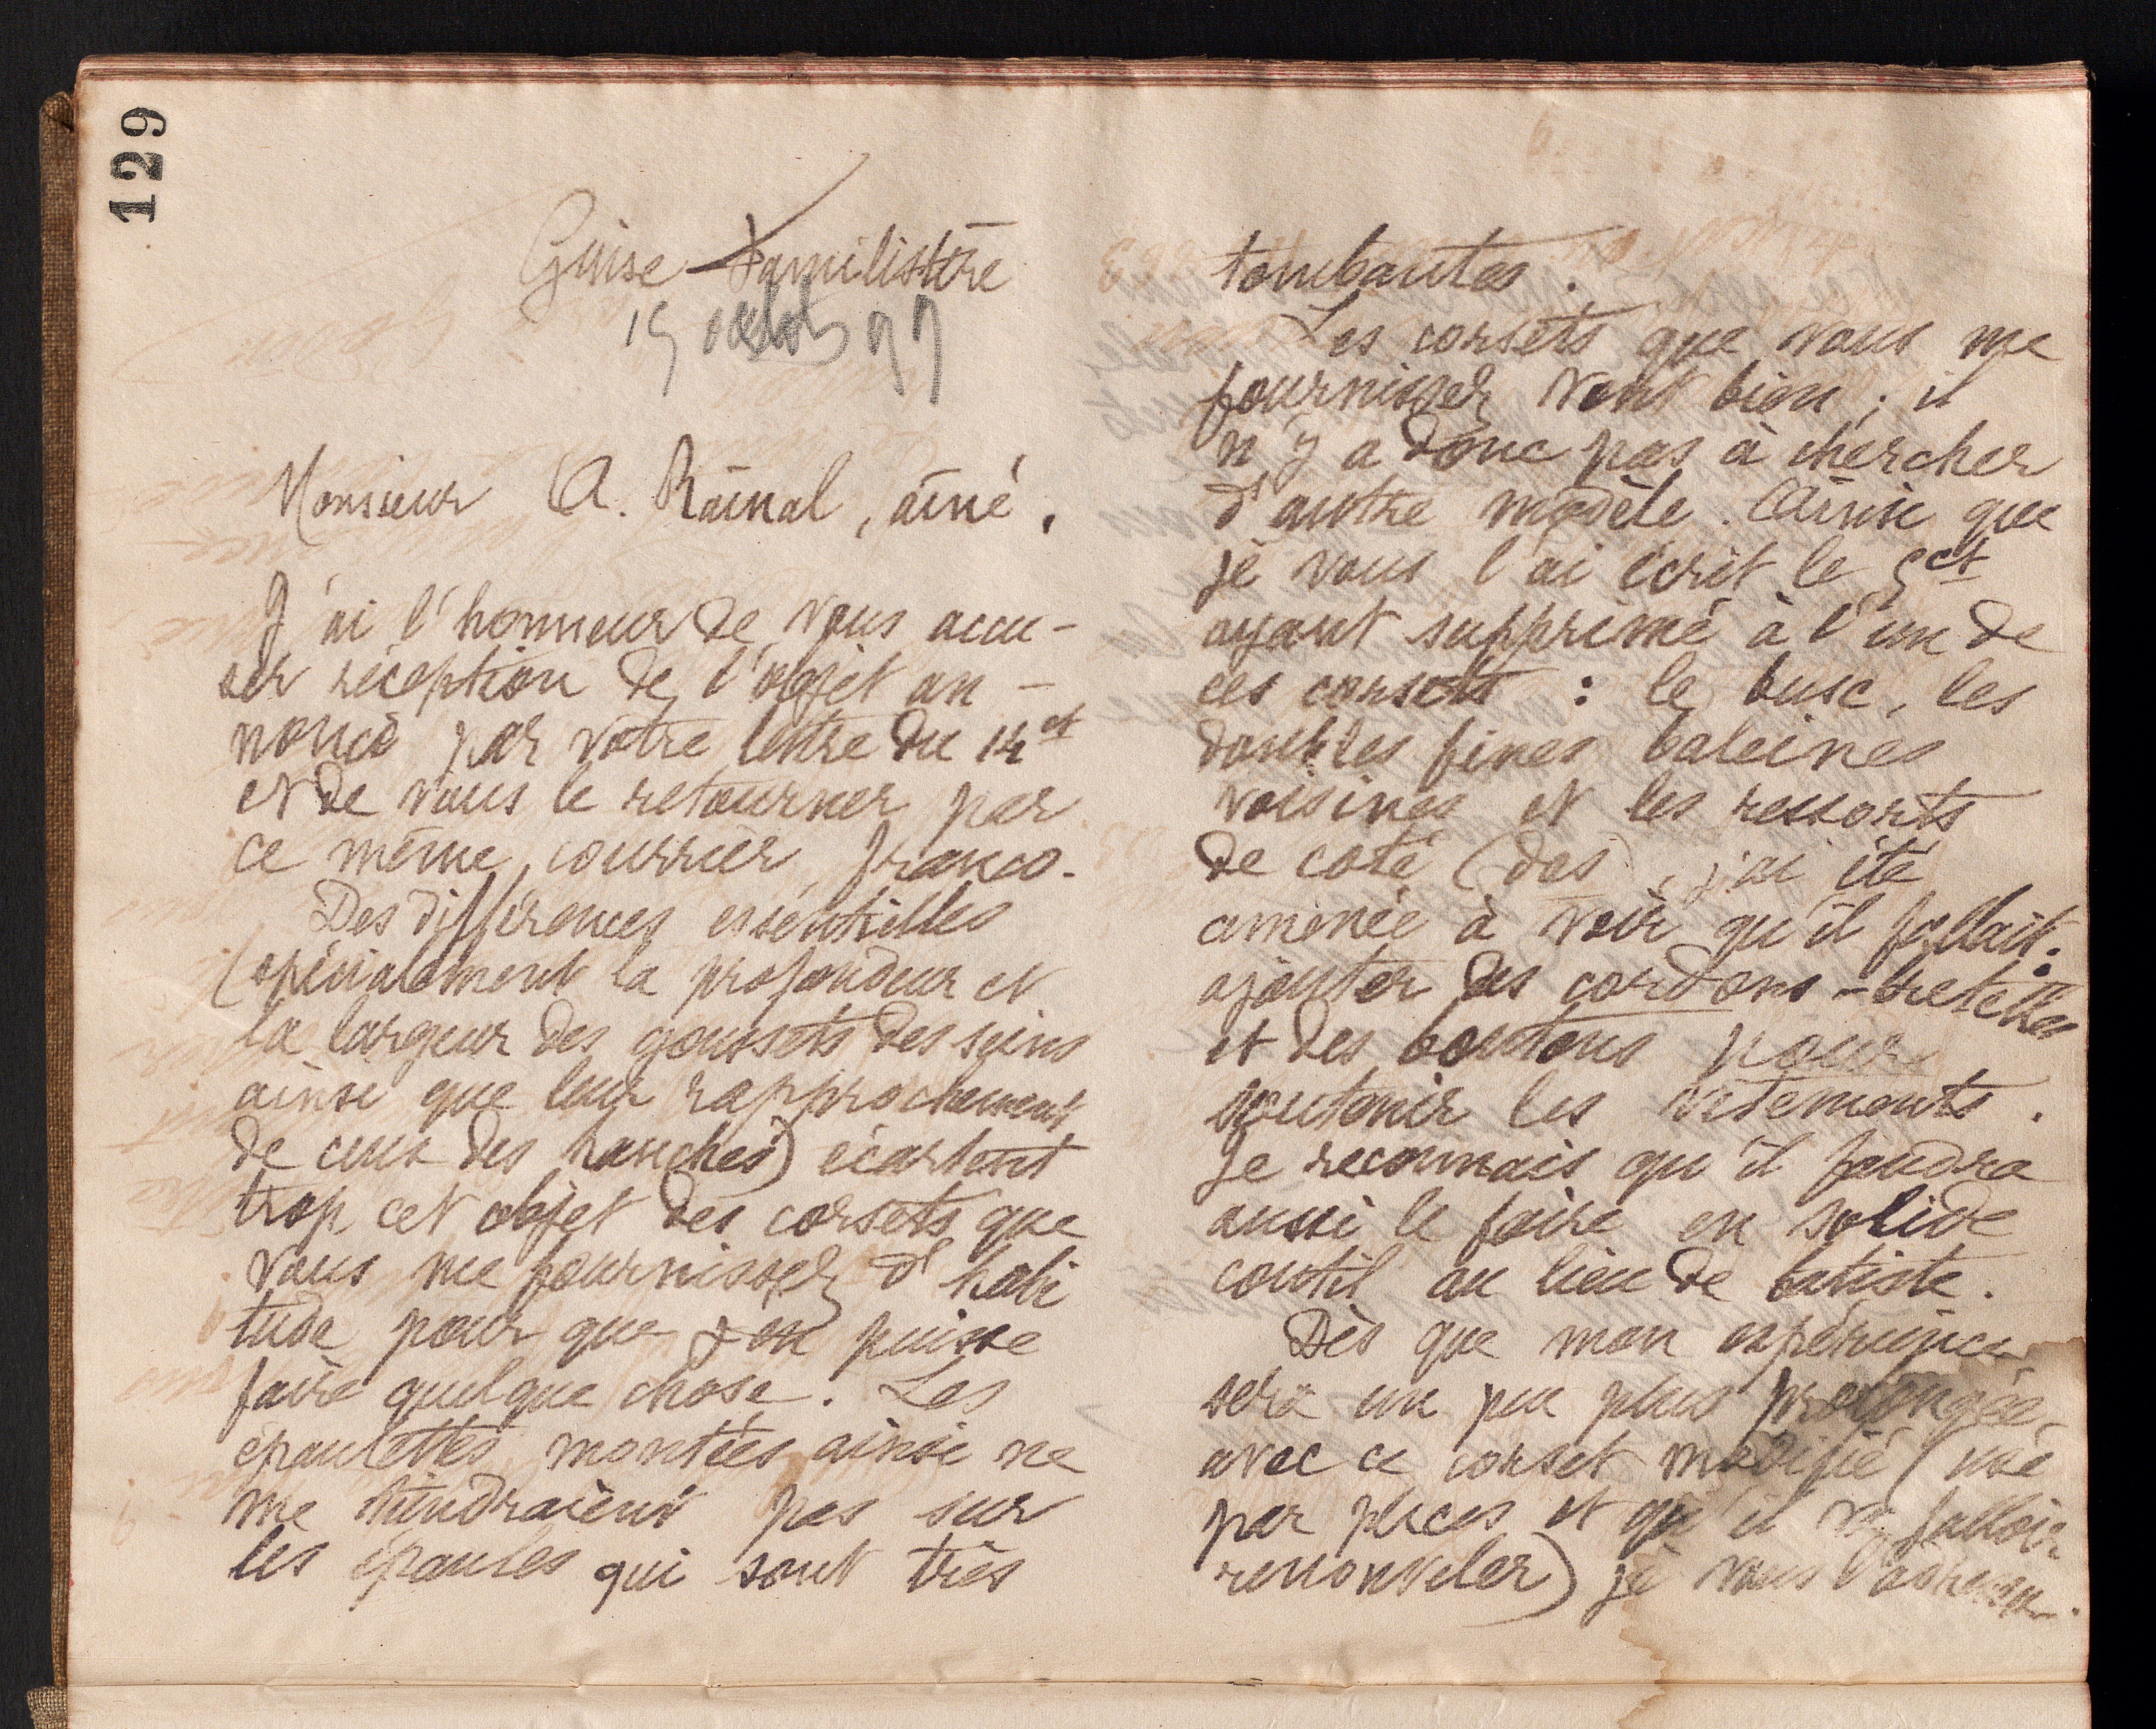 129
Guise Familistère
15 octob 97
Monsieur A. Rainal, aîné.
J'ai l'honneur de vous accu-
ser réception de l'objet an-
noncé par votre lettre du 14 ct
et de vous le retourner par
ce même courrier, franco.
Des différences essentielles
(spécialement la profondeur et
la largeur des goussets des seins
ainsi que leur rapprochement
de ceux des hanches) écartent
trop cet objet des corsets que
vous me fournissez d'habi
tude pour que j'en puisse
faire quelque chose. Les
épaulettes montées ainsi ne
me tiendraient pas sur
les épaules qui sont très
tombantes.
Les corsets que vous me
fournissez vont bien ; il
n'y a donc pas à chercher
d'autre modèle. Ainsi que
je vous l'ai écrit le 5 ct
ayant supprimé à l'un de
ces corsets : le busc, les
doubles fines baleines
voisines et les ressorts
de coté (dos), j'ai été
amenée à voir qu'il fallait
ajouter des cordons-bretelles
et des boutons pour
soutenir les vêtements.
Je reconnais qu'il faudra
aussi le faire en solide
coutil au lieu de batiste.
Dès que mon expérience
sera un peu plus prolongée
avec ce corset modifié (usé
par places et qu'il va falloir
renouveler) je vous l'adresserai.